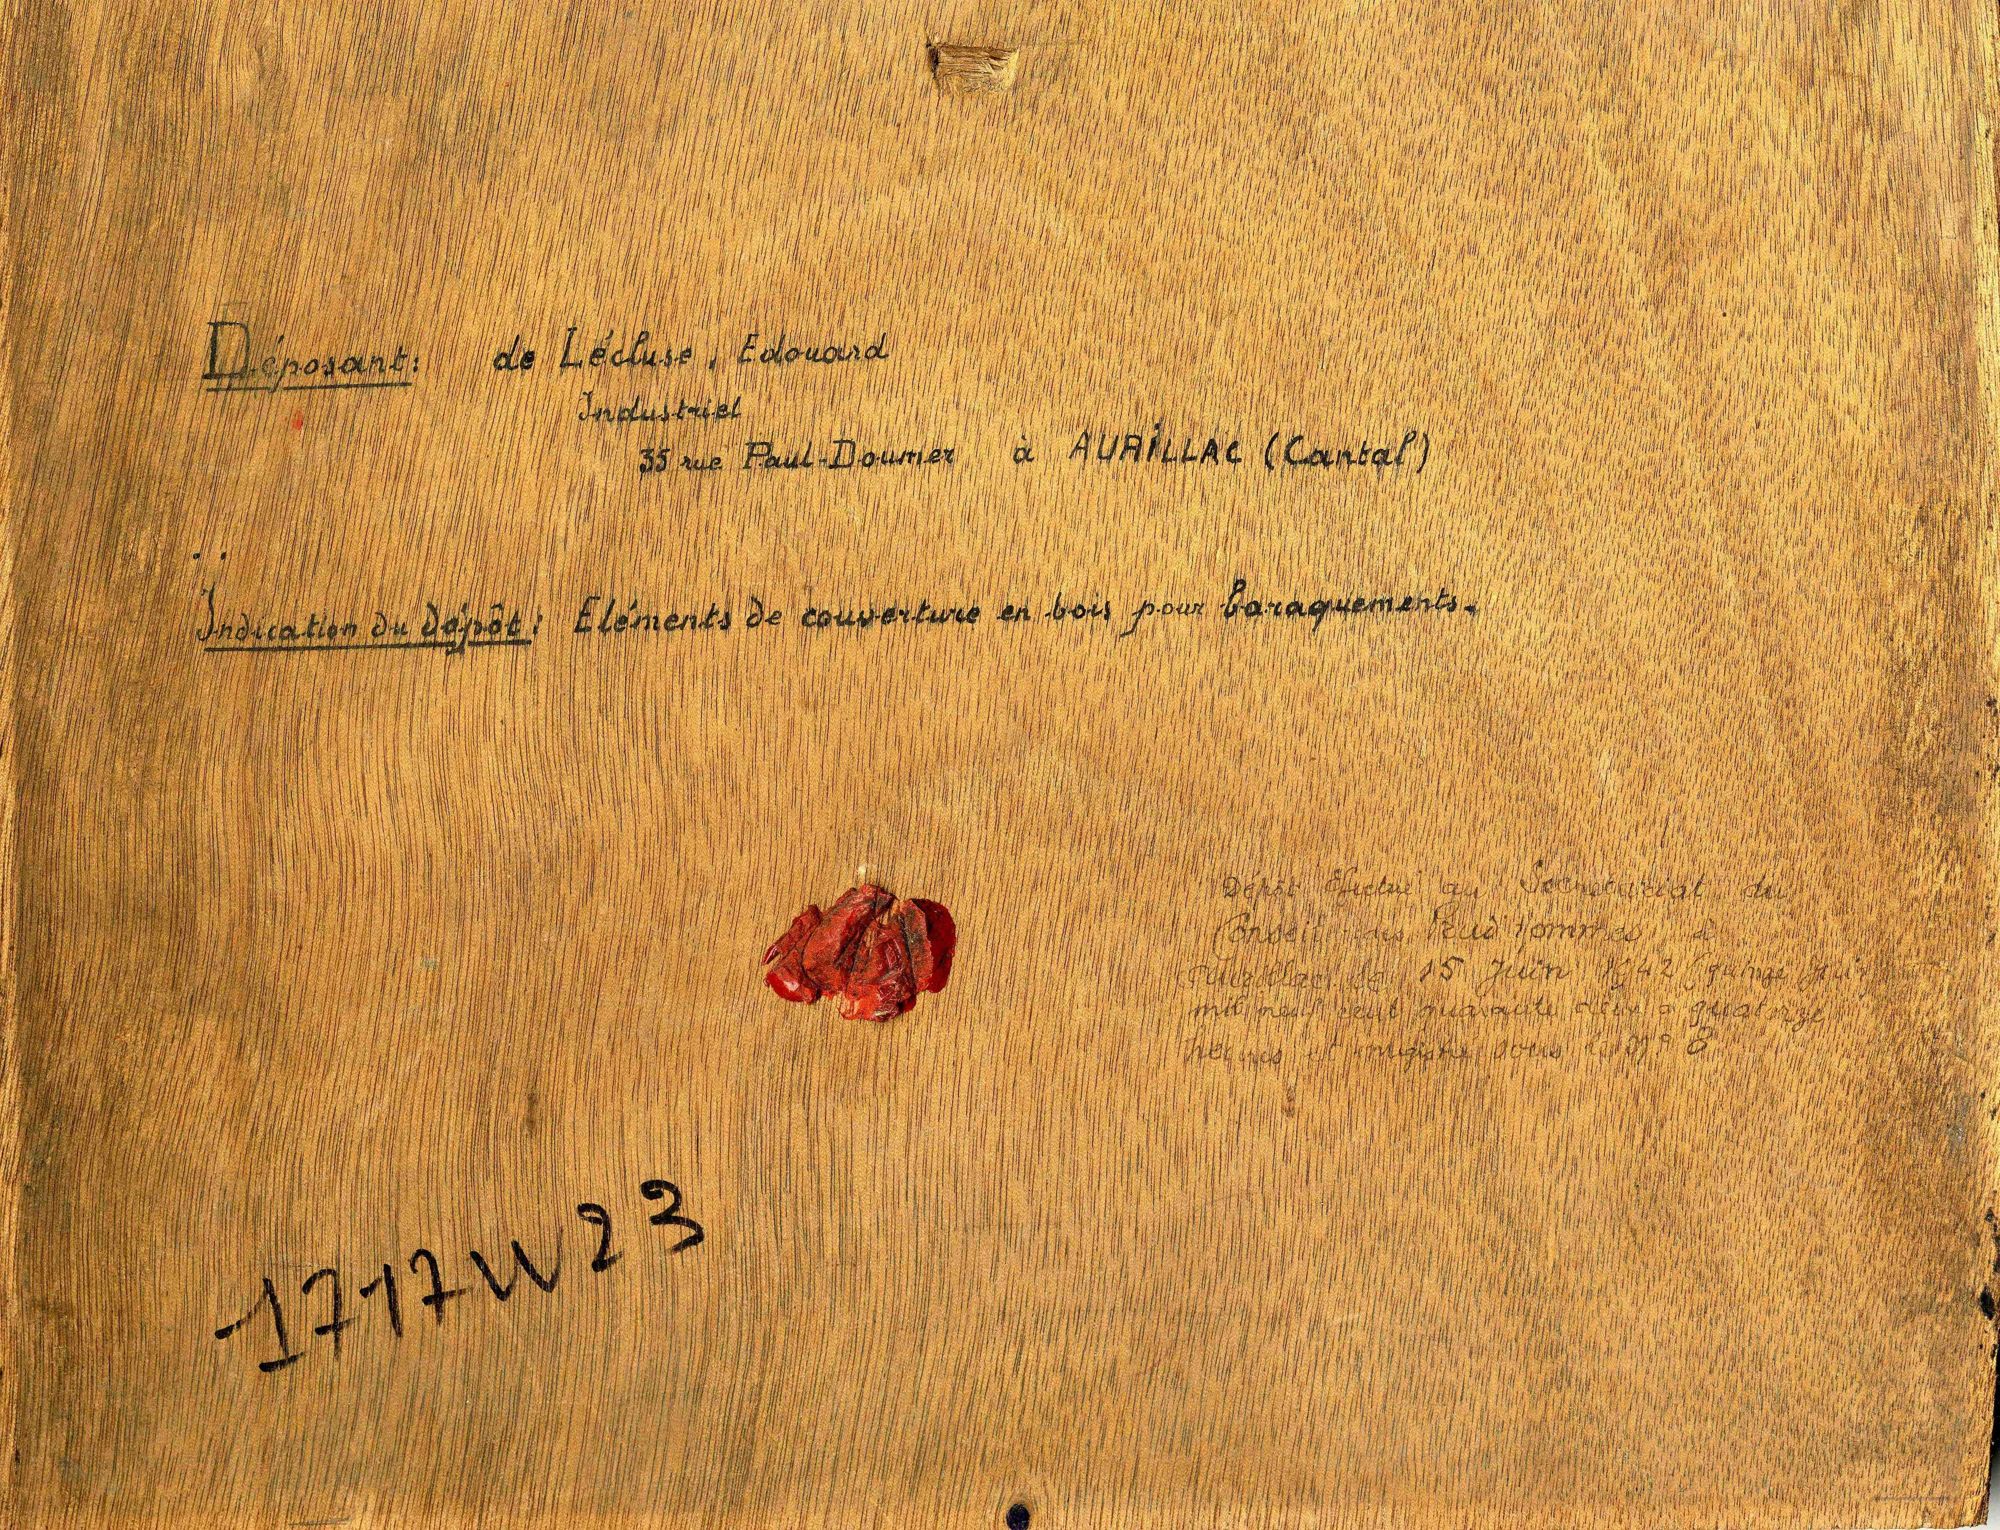 Déposant: de Lécluse, Edouard
Industriel
35 rue Paul-Doumer à AURILLAC (Cantal)
Indication du dépôt: Eléments de couverture en bois pour baraquements.
Dépôt éfectué au Secretariat du
Conseil des Prud'hommes à
Aurillac le 15 Juin 1942 (quinze juin
mil neuf cent quarante deux a quatorze
heures et enregistré sous le N° 8
1717W23